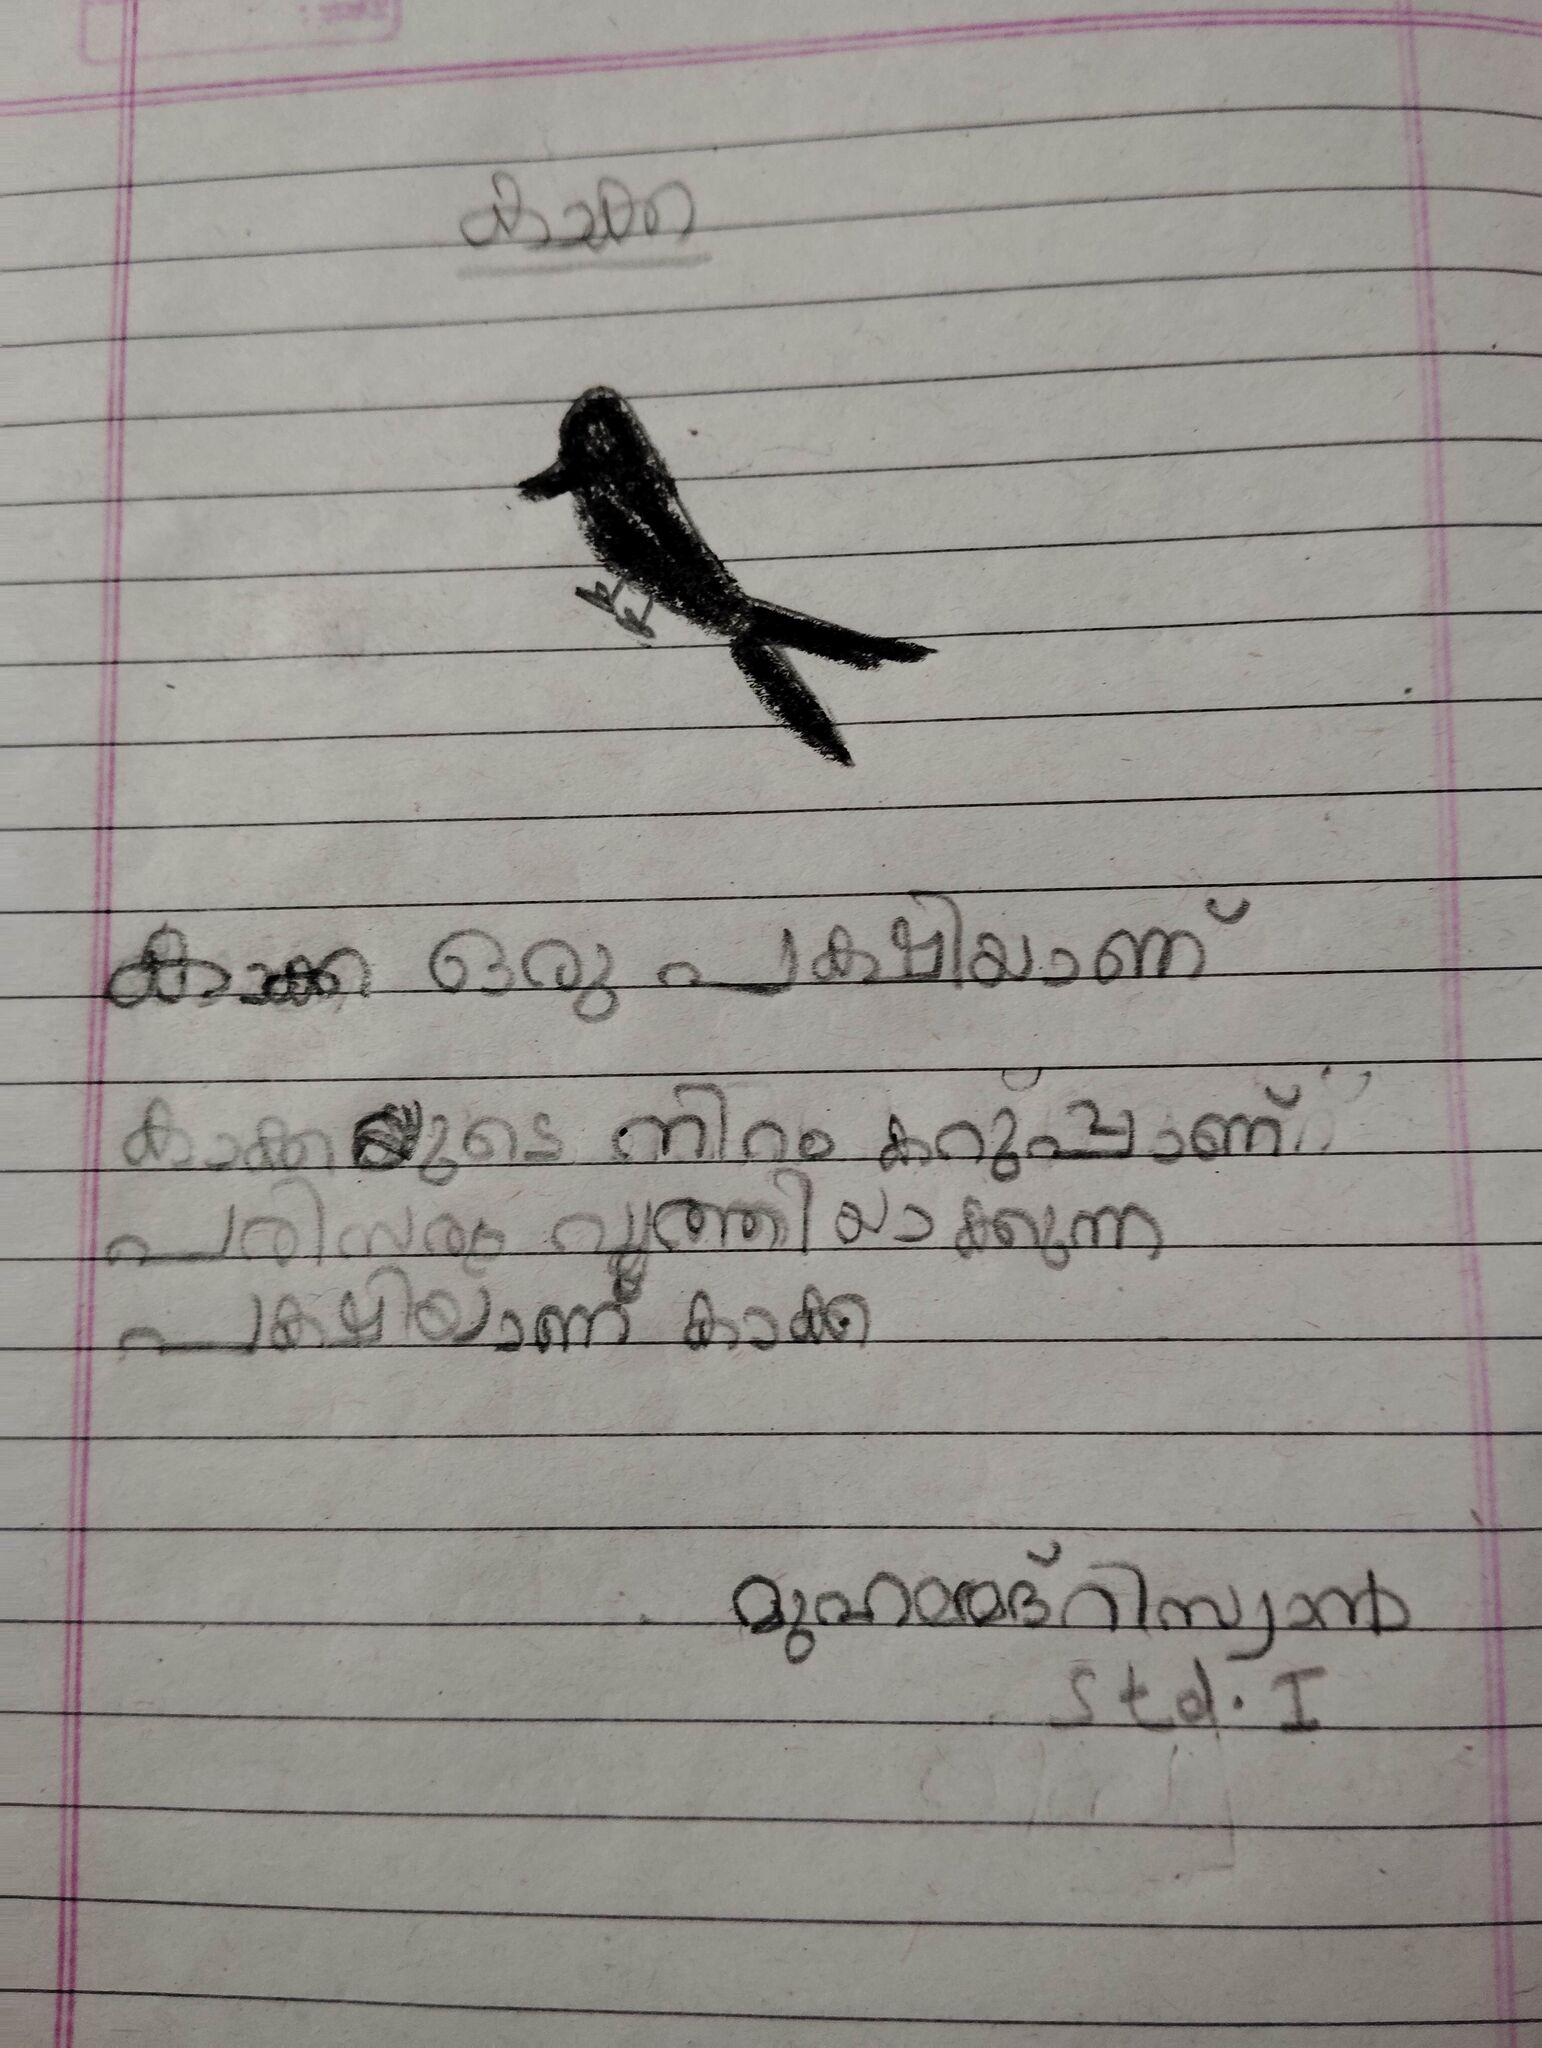 കാക്ക
കാക്ക ഒരു പക്ഷിയാണ്
കാക്കയുടെ നിറം കറുപ്പാണ്
പരിസരം വൃത്തിയാക്കുന്ന
പക്ഷിയാണ് കാക്ക
മുഹമ്മദ് റിസ്വാൻ
Std. I